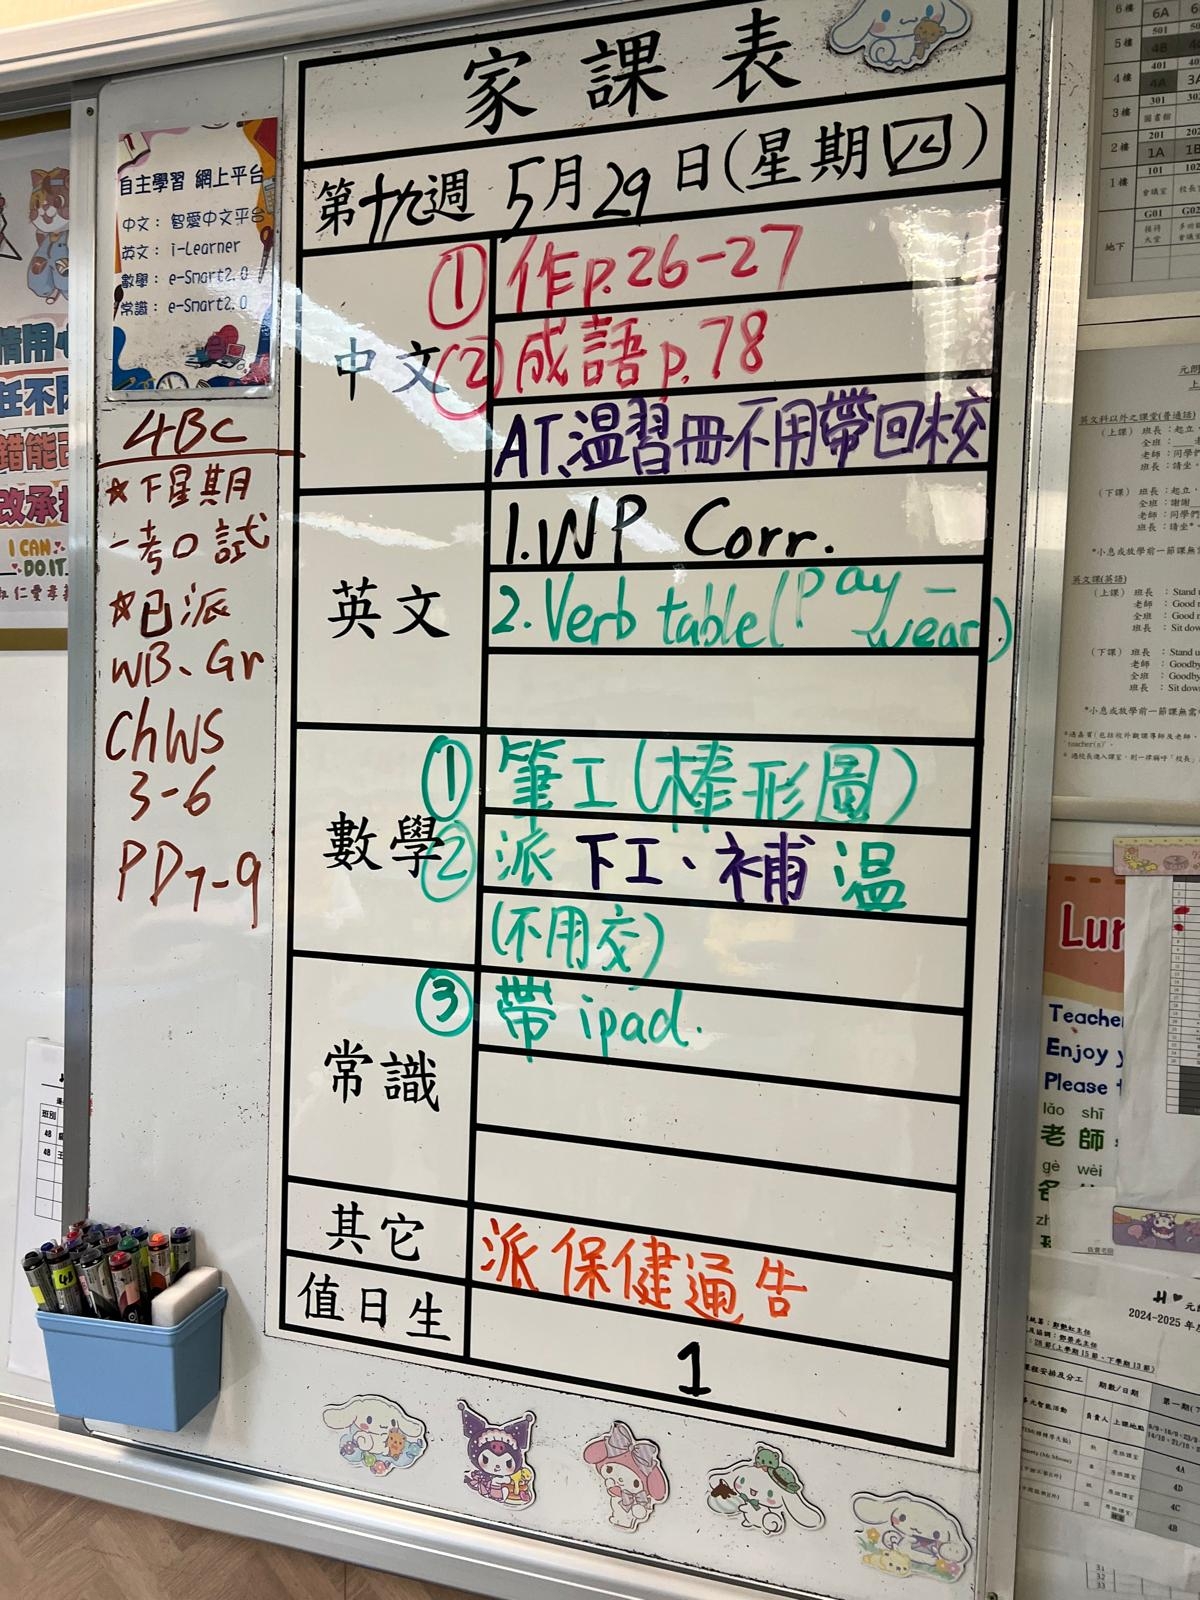 家課表
第十九週 5月29日(星期四)
中文
① 作p.26-27
② 成語p.78
AT、溫習冊不用帶回校
英文
1.WP Corr.
2.Verb table(pay-wear)
數學
① 筆工(棒形圖)
② 派下工、補溫
(不用交)
③ 帶ipad.
常識
其它
派保健通告
值日生
1
自主學習 網上平台
中文: 智愛中文平台
英文: i-Learner
數學: e-Smart2.0
常識: e-Smart2.0
4BC
☆下星期
一考口試
☆已派
WB、Gr
ChWS
3-6
PD7-9
I CAN
DO.IT
6樓 6A
5樓
501
4B
4樓
401
4A
3樓
301
圖書館
2樓
201 202
1A 1B
1樓
101 102
會議室
地下
G01 G02
接待
大堂
英文科以外之課堂(普通話)
(上課) 班長:起立,
全班:
老師:同學們
班長:請坐。
(下課) 班長:起立,
全班:謝謝
老師:同學們
班長:請坐。
英文課(英語)
(上課) 班長 : Stand
老師 : Good
全班 : Good
班長 : Sit down
(下課) 班長 : Stand
老師 : Goodby
全班 : Goodby
班長 : Sit down
Lun
Teache
Enjoy
Please
lǎo shī
老師
gè wèi
2024-2025
期數/日期
負責人 上課地點
4A
4D
4C
4B
31
32
33